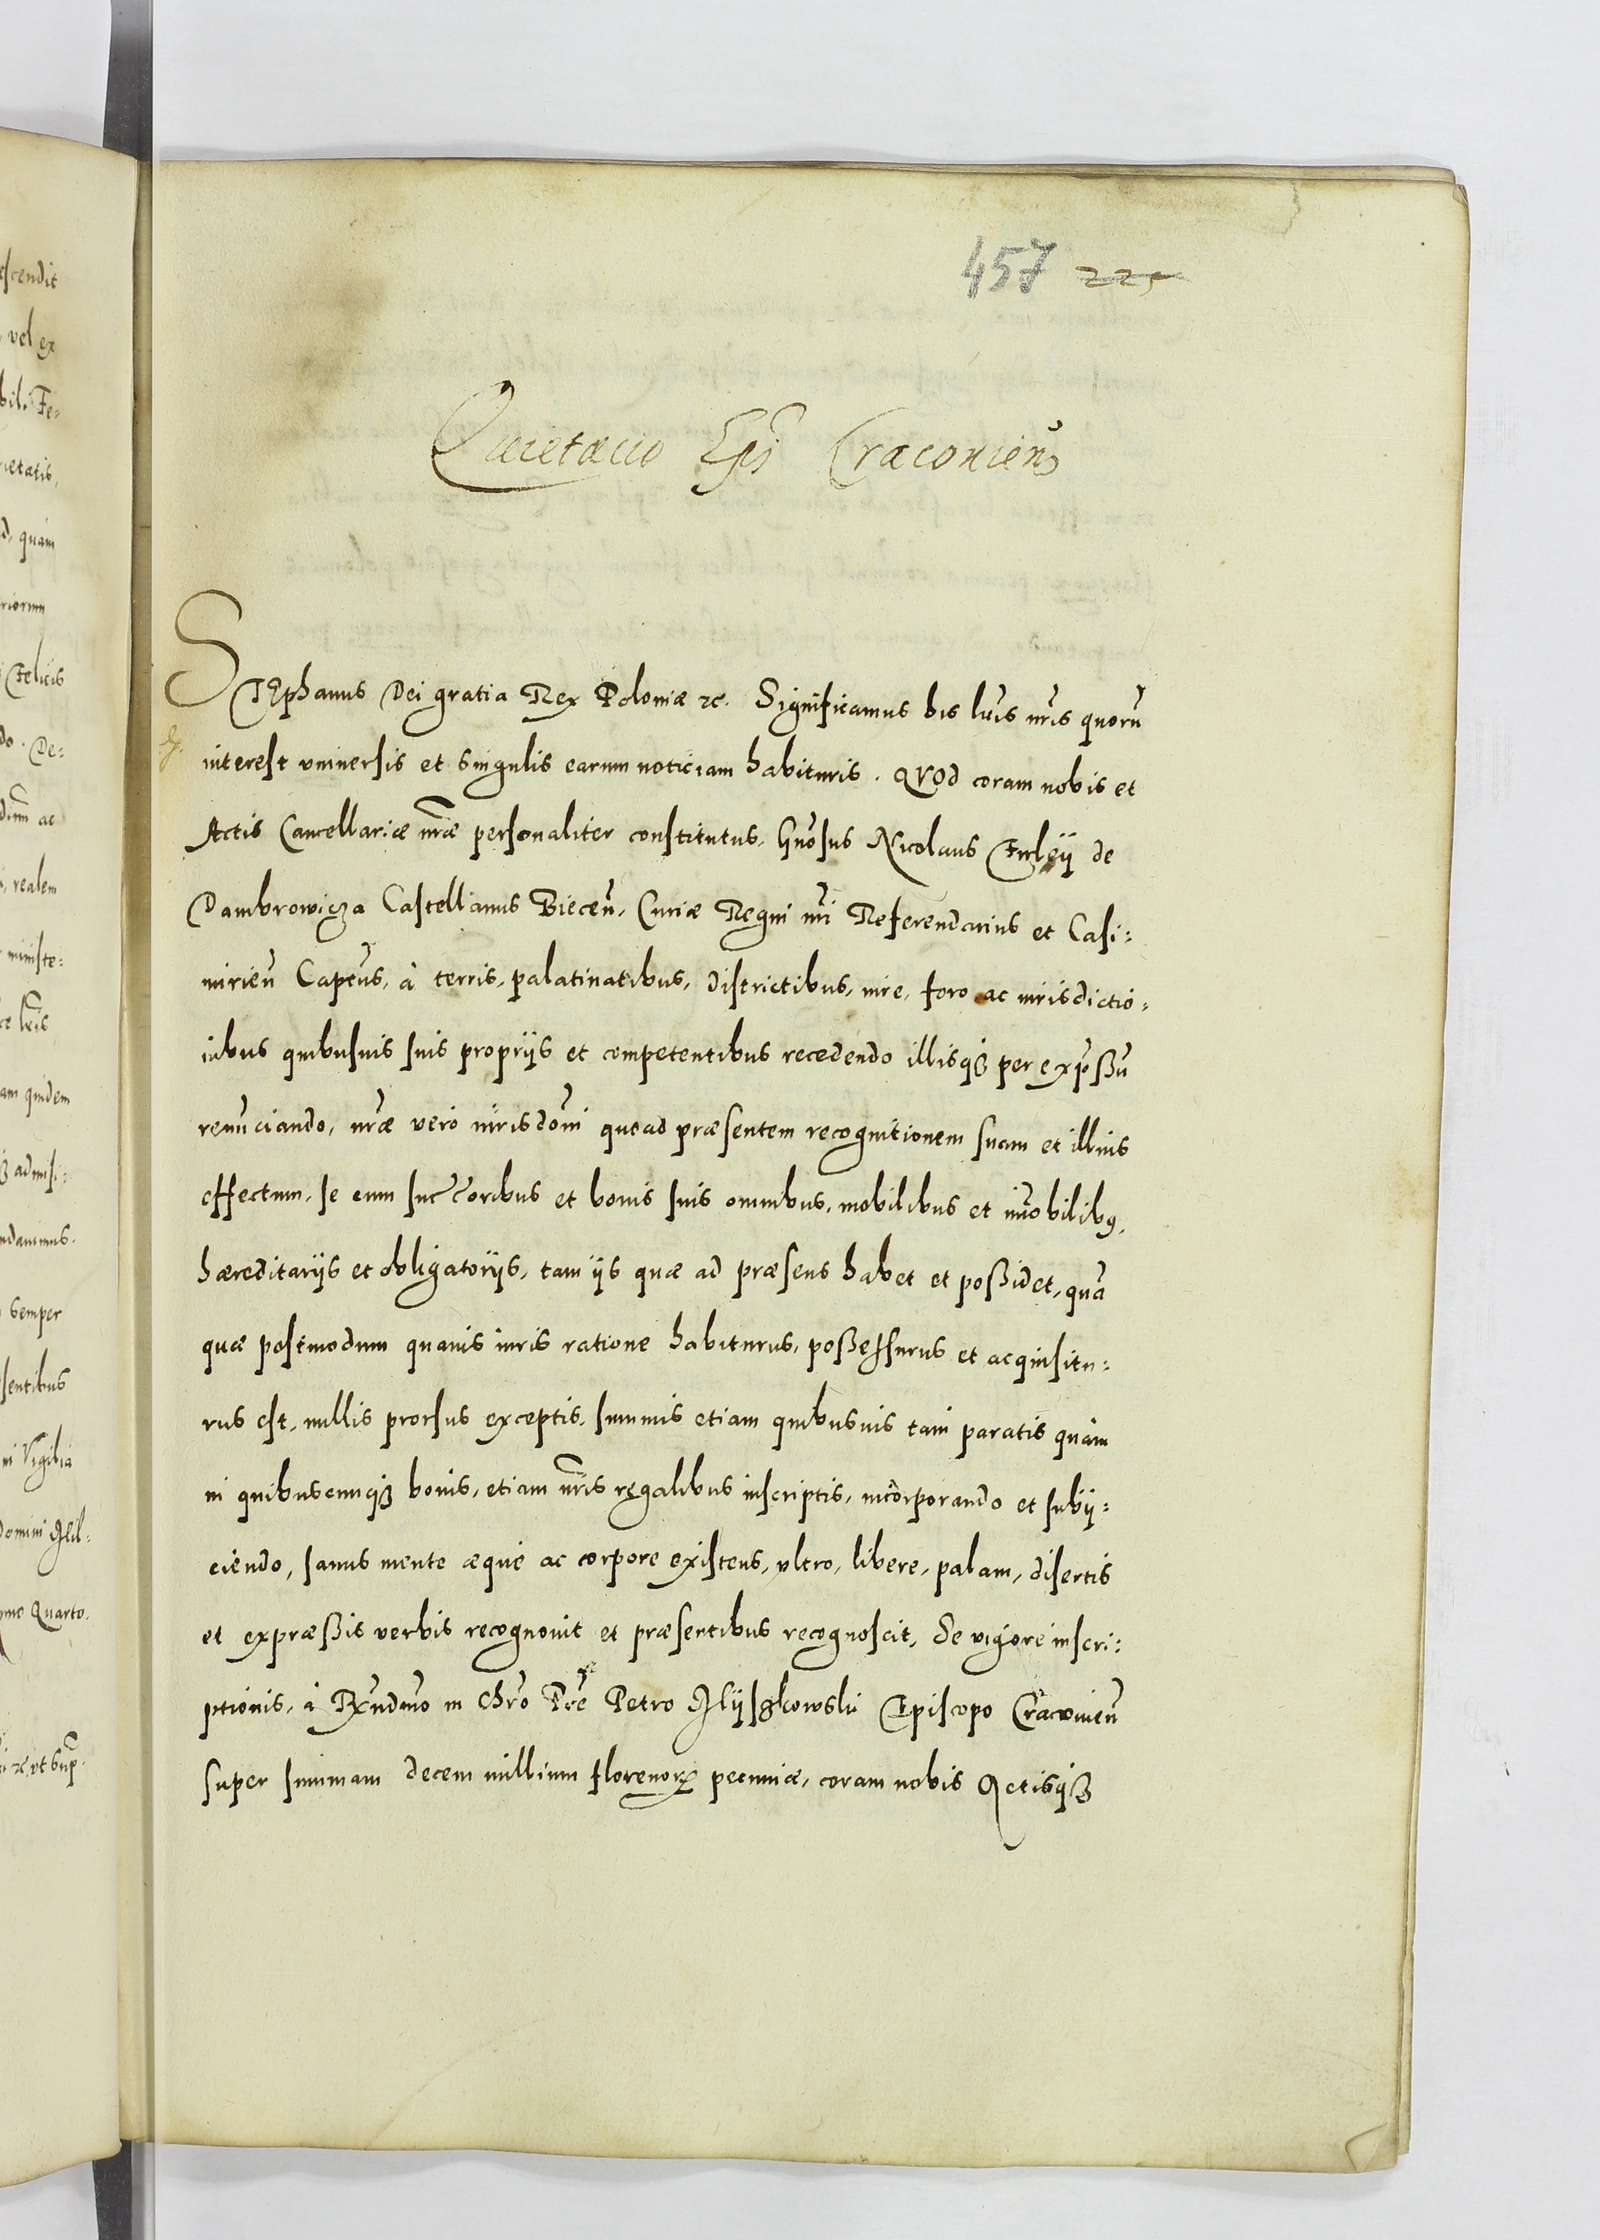 escendit
vel ex
bil. Fe=
rietatis,
d, quàm
riorum
Felicis
do. De:
ac
realem
ministe:
lr̃is
am quidem
admisi:
ndamus.
Semper
sentibus
ni Vigilia
Domini Mil:
Quarto.
ut Sup̃.
457 225
Quietacio Ep̃i Cracouien̄
STEphanus Dei gratia Rex Poloniæ etc. Significamus his lr̃is nr̃is quorũ
interest vniuersis et singulis earum noticiam habituris. QVOd coram nobis et
Actis Cancellariæ nr̃æ personaliter constitutus, Gñosus Nicolaus Firleij de
Dambrowicza Castellanus Biecen̄, Curiæ Regni nr̃i Referendarius et Casi:
mirien̄ Capt̃us, à terris, palatinatibus, districtibus, iure, foro ac iurisdictio:
nibus quibusuis suis proprijs et competentibus recedendo illisqȝ per exp̃ssũ
renũciando, nr̃æ verò iurisdõni quoad præsentem recognitionem suam et illius
effectum, se cum succ̃oribus et bonis suis omnibus, mobilibus et im̃obilibꝰ,
hæreditarijs et obligatorijs, tam ijs quæ ad præsens habet et poßidet, quã
quæ postmodum quauis iuris ratione habiturus, poßessurus et acquisitu:
rus est, nullis prorsus exceptis, summis etiam quibusuis tam paratis quàm
in quibuscunqȝ bonis, etiam nr̃is regalibus inscriptis, incorporando et subij:
ciendo, sanus mente æque ac corpore existens, vltro, libere, palam, disertis
et expræßis verbis recognouit et præsentibus recognoscit, de vigore inscri:
ptionis, à Rx̃ndmo in Chr̃o Pr̃e Petro Mijszkowski Episcopo Cracouien̄
super summam decem millium florenorꝝ pecuniæ, coram nobis Actisqȝ